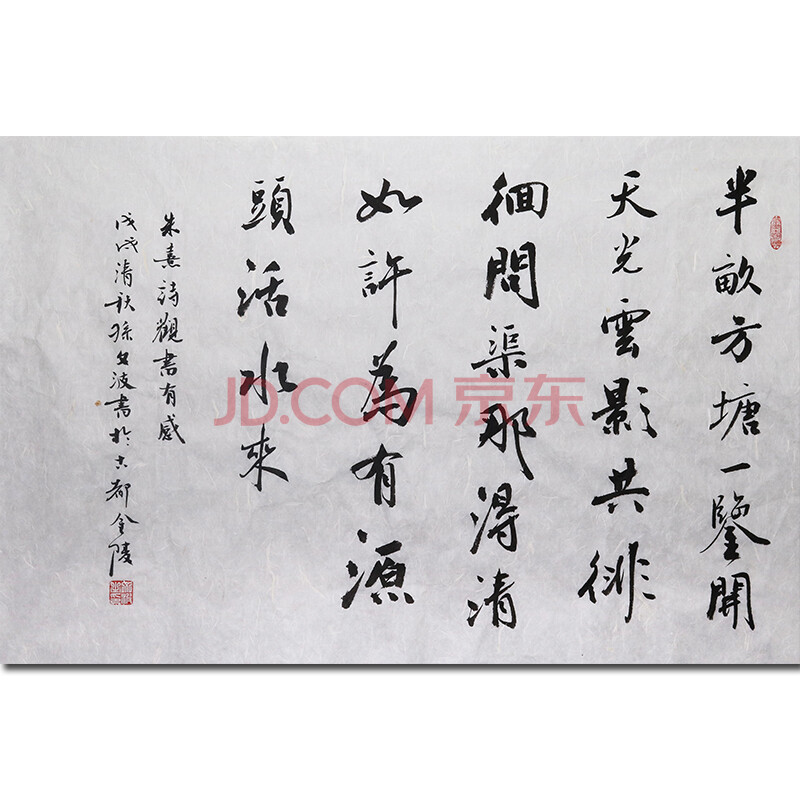 半畝方塘一鑒開
天光雲影共徘
徊問渠那得清
如許為有源
頭活水來
朱熹詩觀書有感
戊戌清秋孫文波書於古都金陵
JD.COM 京东